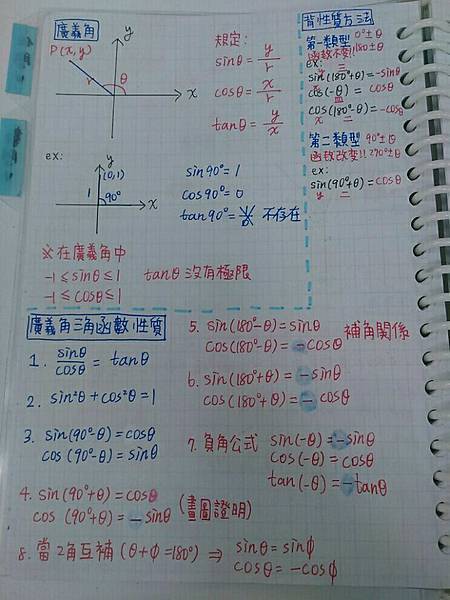 廣義角
P(x,y)
y
r
θ
x
規定:
sinθ = y/r
cosθ = x/r
tanθ = y/x
背性質方法
第一類型 0°±θ
函數不變!! 180±θ
ex: 三
sin(180°+θ) = -sinθ
四
cos(-θ) = cosθ
cos(180°-θ) = -cosθ
x 二
第二類型 90°±θ
函數改變!! 270°±θ
ex:
sin(90°+θ) = cosθ
y 二
ex:
y
(0,1)
1
90°
x
sin90° = 1
cos90° = 0
tan90° = 不存在
※在廣義角中
-1≤sinθ≤1 tanθ沒有極限
-1≤cosθ≤1
廣義角三角函數性質
1. sinθ/cosθ = tanθ
2. sin²θ+cos²θ=1
3. sin(90°-θ)=cosθ
cos(90°-θ)=sinθ
4. sin(90°+θ)=cosθ
cos(90°+θ)=-sinθ (畫圖證明)
5. sin(180°-θ)=sinθ
cos(180°-θ)=-cosθ 補角關係
6. sin(180°+θ)=-sinθ
cos(180°+θ)=-cosθ
7. 負角公式 sin(-θ)=-sinθ
cos(-θ)=cosθ
tan(-θ)=-tanθ
8. 當2角互補(θ+φ=180°) ⇒ sinθ=sinφ
cosθ=-cosφ